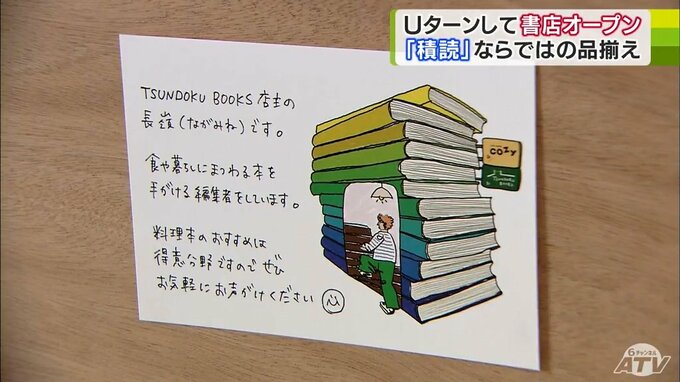 Uターンして書店オープン
「積読」ならではの品揃え
TSUNDOKU BOOKS 店主の
長嶺(ながみね)です。
食や暮らしにまつわる本を
手がける編集者をしています。
料理本のおすすめは
得意分野ですのでぜひ
お気軽にお声がけください
COZY
TSUNDOKU
BOOKS
6チャンネル
ATV